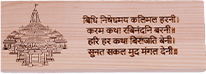 बिधि निषेधमय कलिमल हरनी।
करम कथा रबिनंदनि बरनी॥
हरि हर कथा बिराजति बेनी।
सुनत सकल मुद मंगल देनी॥